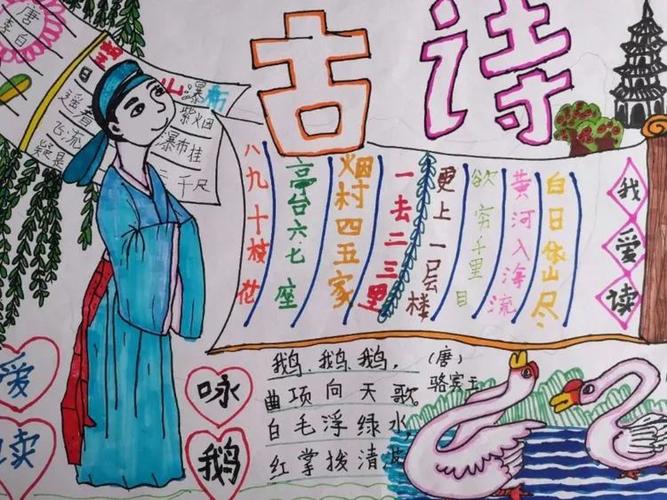 古诗
唐
李白
日
山瀑布
紫烟
遥看
瀑布挂
飞流
千尺
疑是
我爱读
白日依山尽
黄河入海流
欲穷千里目
更上一层楼
一去二三里
烟村四五家
亭台六七座
八九十枝花
爱
读
咏
鹅
鹅,鹅,鹅,
(唐)
骆宾王
曲项向天歌,
白毛浮绿水,
红掌拨清波